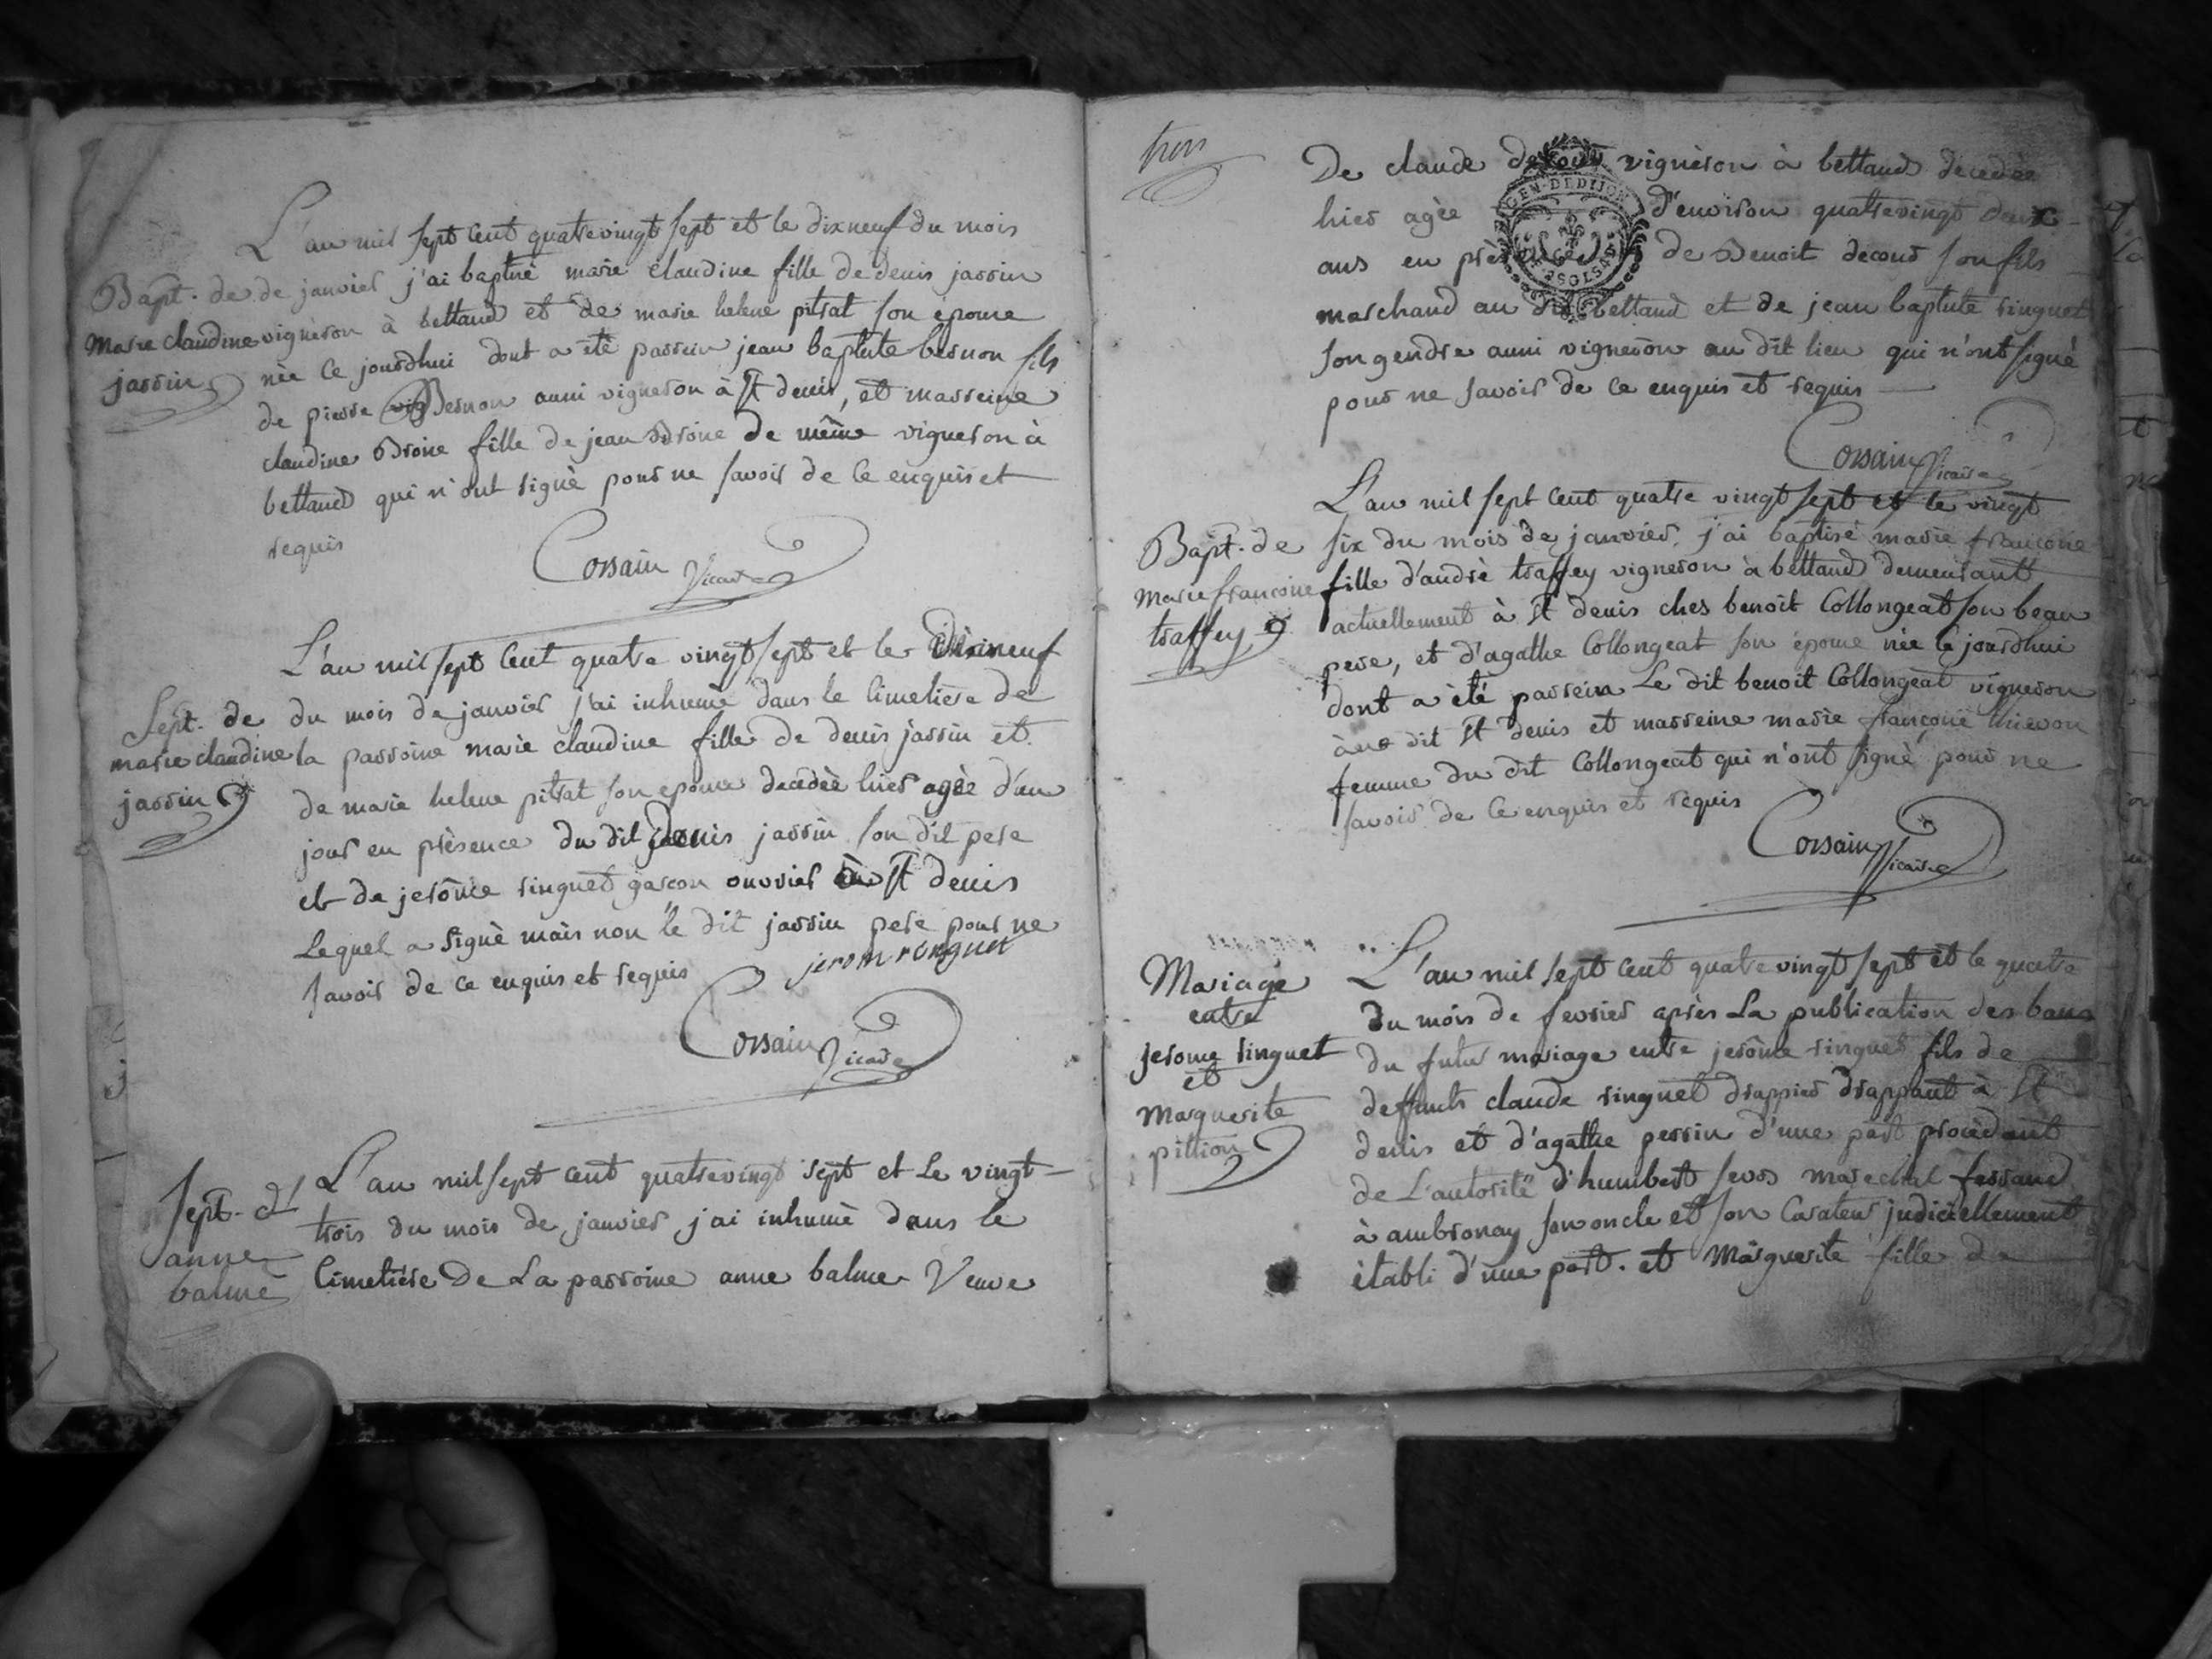 L'an mil sept cent quatrevingt sept et le dixneuf du mois
Bapt. de
marie claudine
jassin
de janvier j'ai baptisé marie claudine fille de denis jassin
vigneron à bettand et de marie helene pitrat son épouse
née ce jourdhui dont a été parrein jean baptiste besnon fils
de pierre Besnon aussi vigneron à St denis, et marreine
claudine Broise fille de jean Broise de même vigneron à
bettand qui n'ont signé pour ne savoir de ce enquis et
requis
Corsain Vicaire
L'an mil sept cent quatre vingt sept et le dixneuf
Sept. de
marie claudine
jassin
du mois de janvier j'ai inhumé dans le cimetière de
la parroisse marie claudine fille de denis jassin et
de marie helene pitrat son epouse decedée hier agée d'un
jour en présence du dit denis jassin son dit pere
et de jerôme ringuet garcon ouvrier à St denis
Lequel a signé mais non le dit jassin pere pour ne
savoir de ce enquis et requis
jerom ronguet
Corsain Vicaire
Sept. d'
anne
balme
L'an mil sept cent quatrevingt sept et Le vingt
trois du mois de janvier j'ai inhumé dans le
Cimetière de La parroisse anne balme Veuve
trois
De claude vigneron à bettand decedée
hier agée d'environ quatrevingt deux
ans en présence de Benoit decour son fils
marchand au dit bettand et de jean baptiste ringuet
son gendre aussi vigneron au dit lieu qui n'ont signé
pour ne savoir de ce enquis et requis
Corsain Vicaire
L'an mil sept cent quatre vingt sept et le vingt
Bapt. de
marie francoise
traffey
six du mois de janvier j'ai baptisé marie francoise
fille d'andré traffey vigneron à bettand demeurant
actuellement à St denis ches benoit Collongeat son beau
pere, et d'agathe Collongeat son épouse née ce jourdhui
dont a été parrein Le dit benoit Collongeat vigneron
au dit St denis et marreine marie françoise
femme du dit Collongeat qui n'ont signé pour ne
savoir de ce enquis et requis
Corsain Vicaire
Mariage
entre
jerome ringuet
et
Marguerite
pittion
L'an mil sept cent quatre vingt sept et le quatre
du mois de fevrier après La publication des bans
du futur mariage entre jerôme ringuet fils de
deffunts claude ringuet drappier drappant à St
denis et d'agathe perrin d'une part procedant
de L'autorité d'humbert marechal ferrand
à ambronay son oncle et son Curateur judiciellement
établi d'une part. et Marguerite fille de